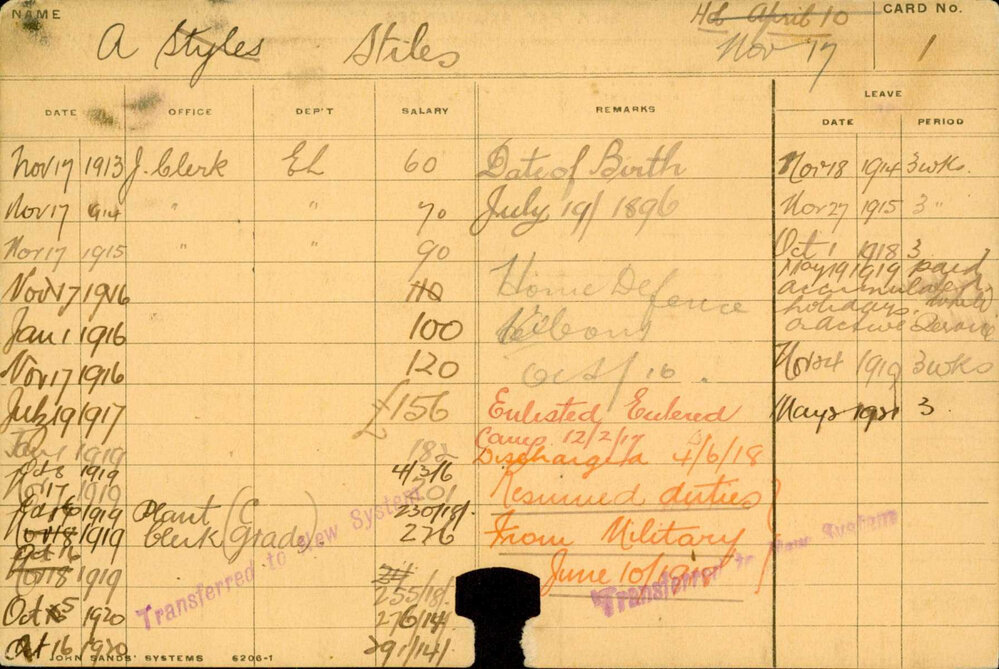 NAME
4th April 10
CARD No.
A Styles Stiles
Nov 17
1
LEAVE
DATE OFFICE DEP'T SALARY REMARKS DATE PERIOD
Nov 17 1913 J. Clerk EL 60 Date of Birth Nov 18 1914 3 wks.
Nov 17 1914 " " 70 July 19/1896 Nov 27 1915 3 "
Nov 17 1915 " " 90 Oct 1 1918 3
May 19 1919 paid
Nov 17 1916 110 Home Defence accumulated
holidays. while
Jan 1 1916 100 o active Service
Nov 17 1916 120 Oct / 16. Nov 24 1919 3 wks
July 19 1917 £156 Enlisted Entered May 2 1921 3
Camp 12/2/17
Jan 1 1919 182 Discharged 4/6/18
Oct 8 1919 4/3/6
Nov 17 1919 201 Resumed duties
1919 Plant (C 230/18/.
Nov 18 1919 Clerk Grade) 226 From Military
Oct 16
Nov 18 1919 June 10/1918
255/18/.
Oct 1920 276/14/.
Oct 16 1920 291/14/.
Transferred to New System
Transferred to New System
JOHN SANDS' SYSTEMS 6206-1